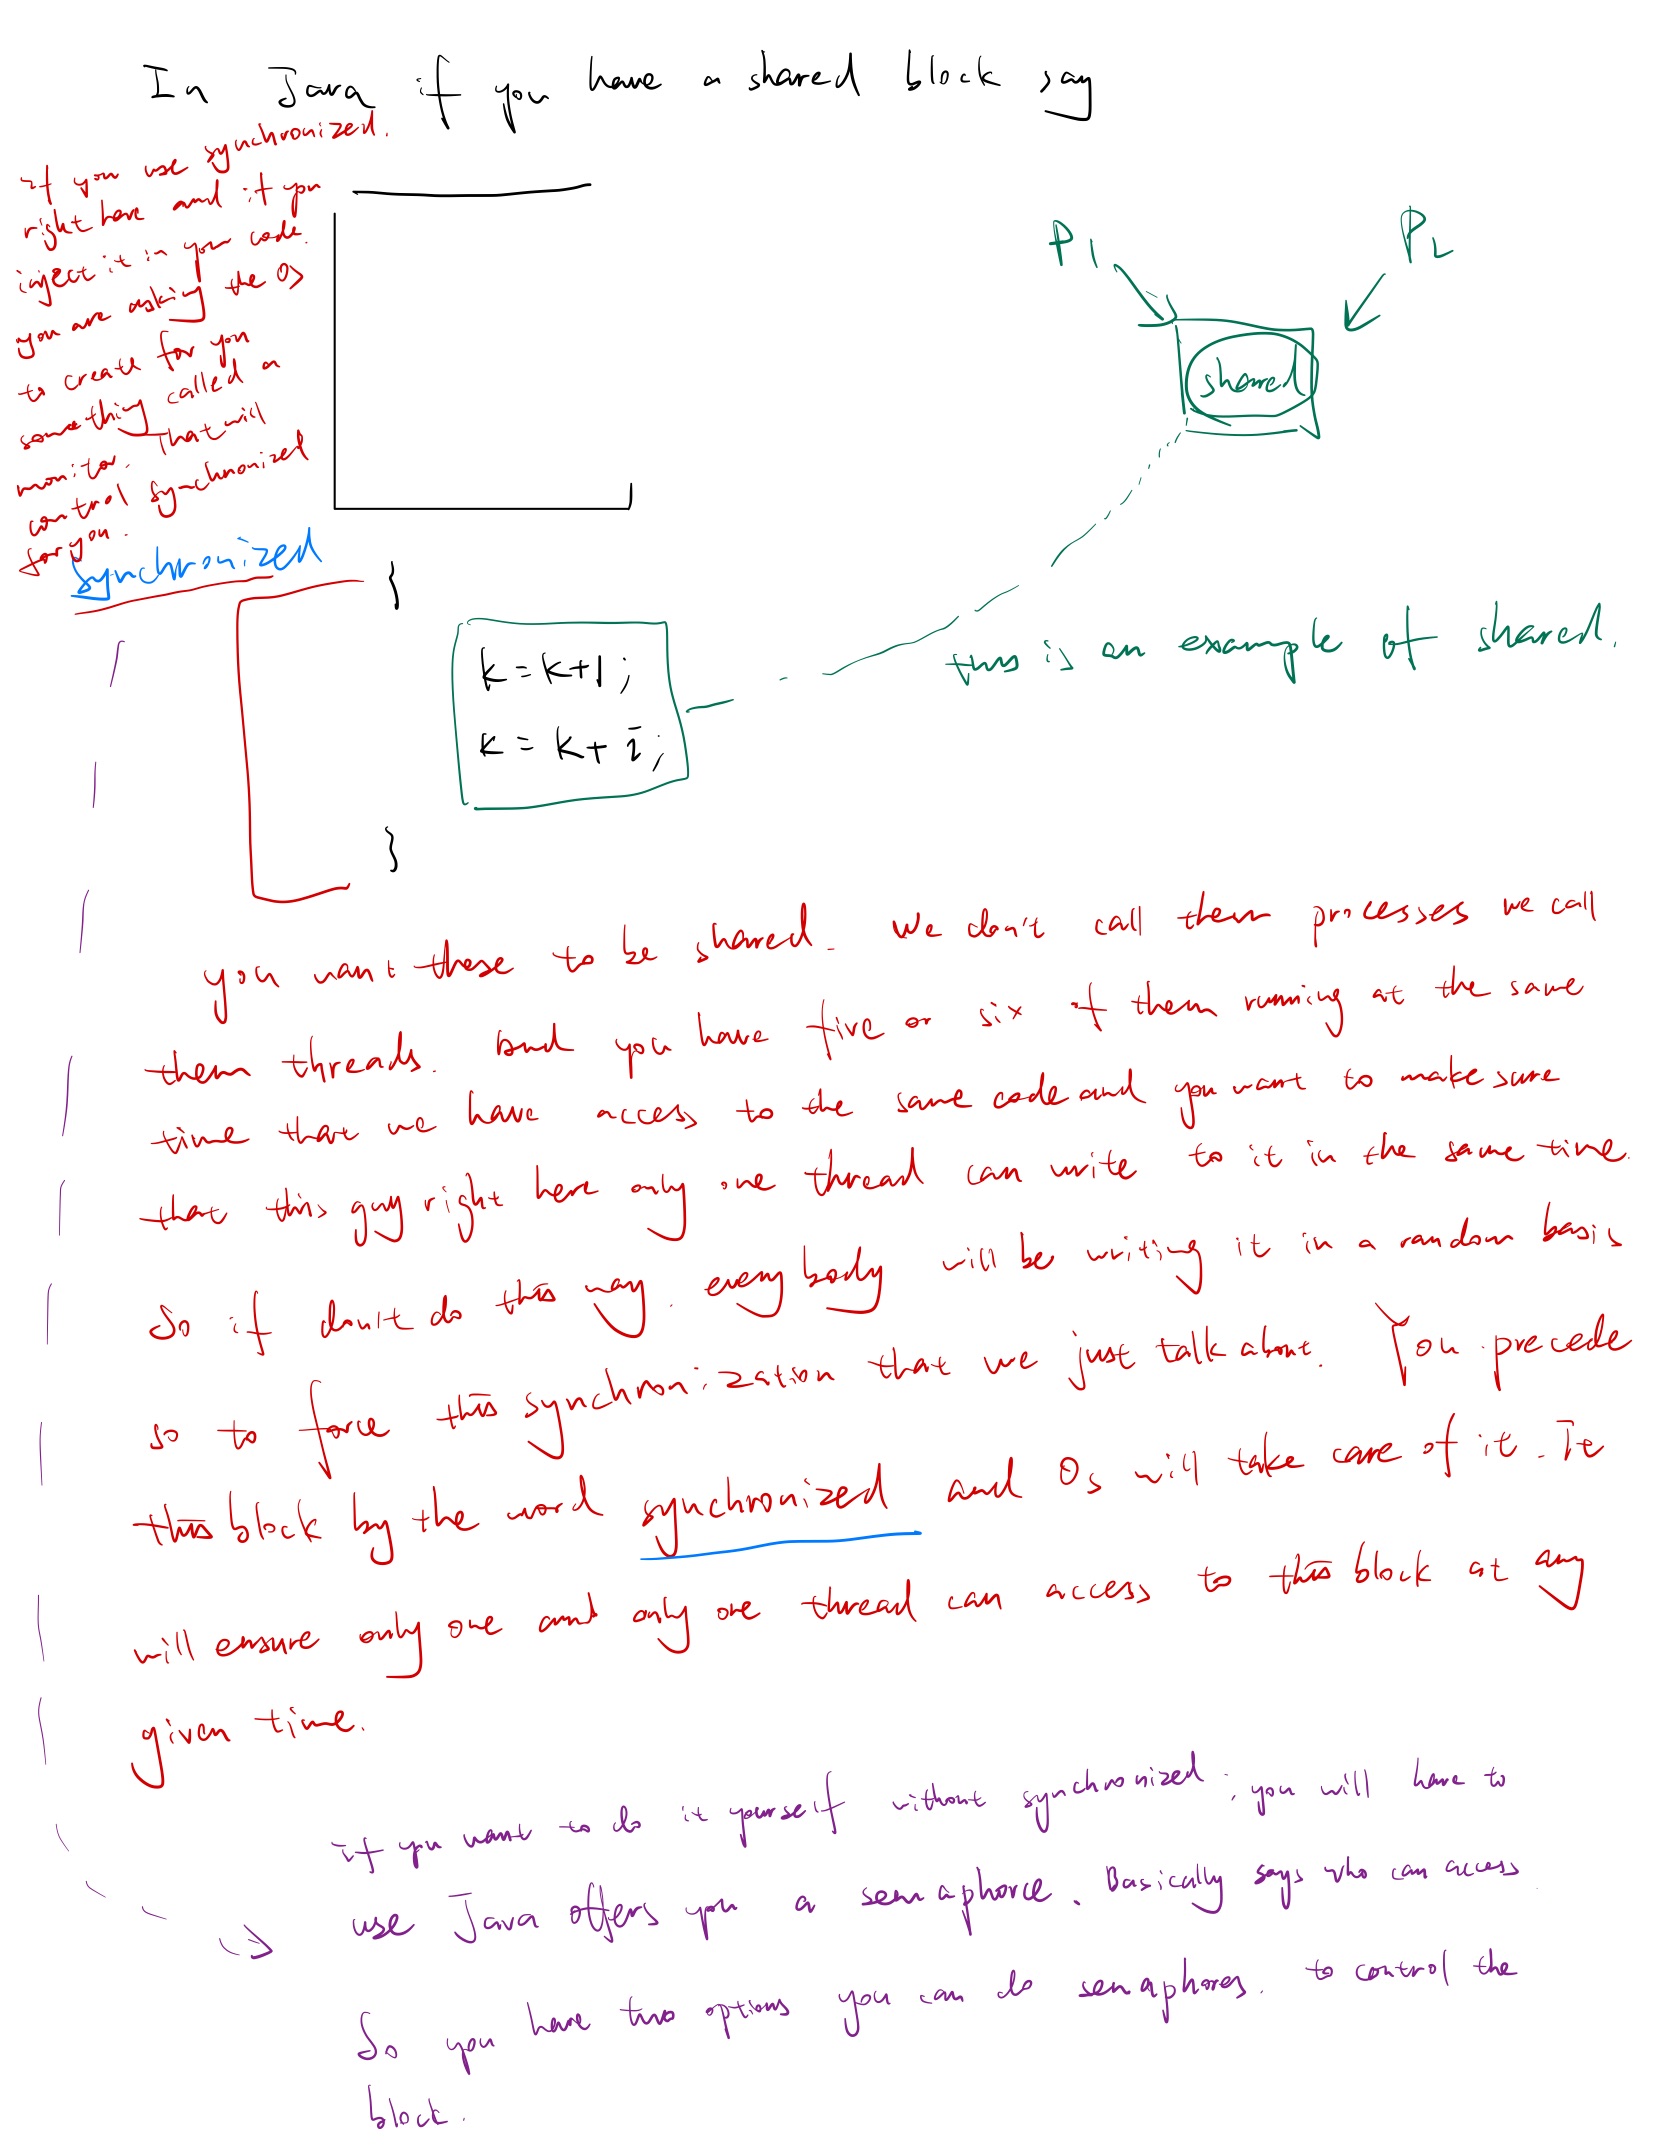 In Java if you have a shared block say
if you use synchronized.
right here and if you
inject it in your code.
you are asking the Os
to create for you
something called a
monitor. That will
control synchronized
for you.
P1
P2
shared
synchronized
{
k = k+1;
k = k+i;
}
this is an example of shared.
you want these to be shared. We don't call them processes we call
them threads. and you have five or six of them running at the same
time that we have access to the same code and you want to make sure
that this guy right here only one thread can write to it in the same time.
So if don't do this way. everybody will be writing it in a random basis
so to force this synchronization that we just talk about. You precede
this block by the word synchronized and Os will take care of it. It
will ensure only one and only one thread can access to this block at any
given time.
if you want to do it yourself without synchronized, you will have to
use Java offers you a semaphorce. Basically says who can access
So you have two options you can do semaphores. to control the
block.